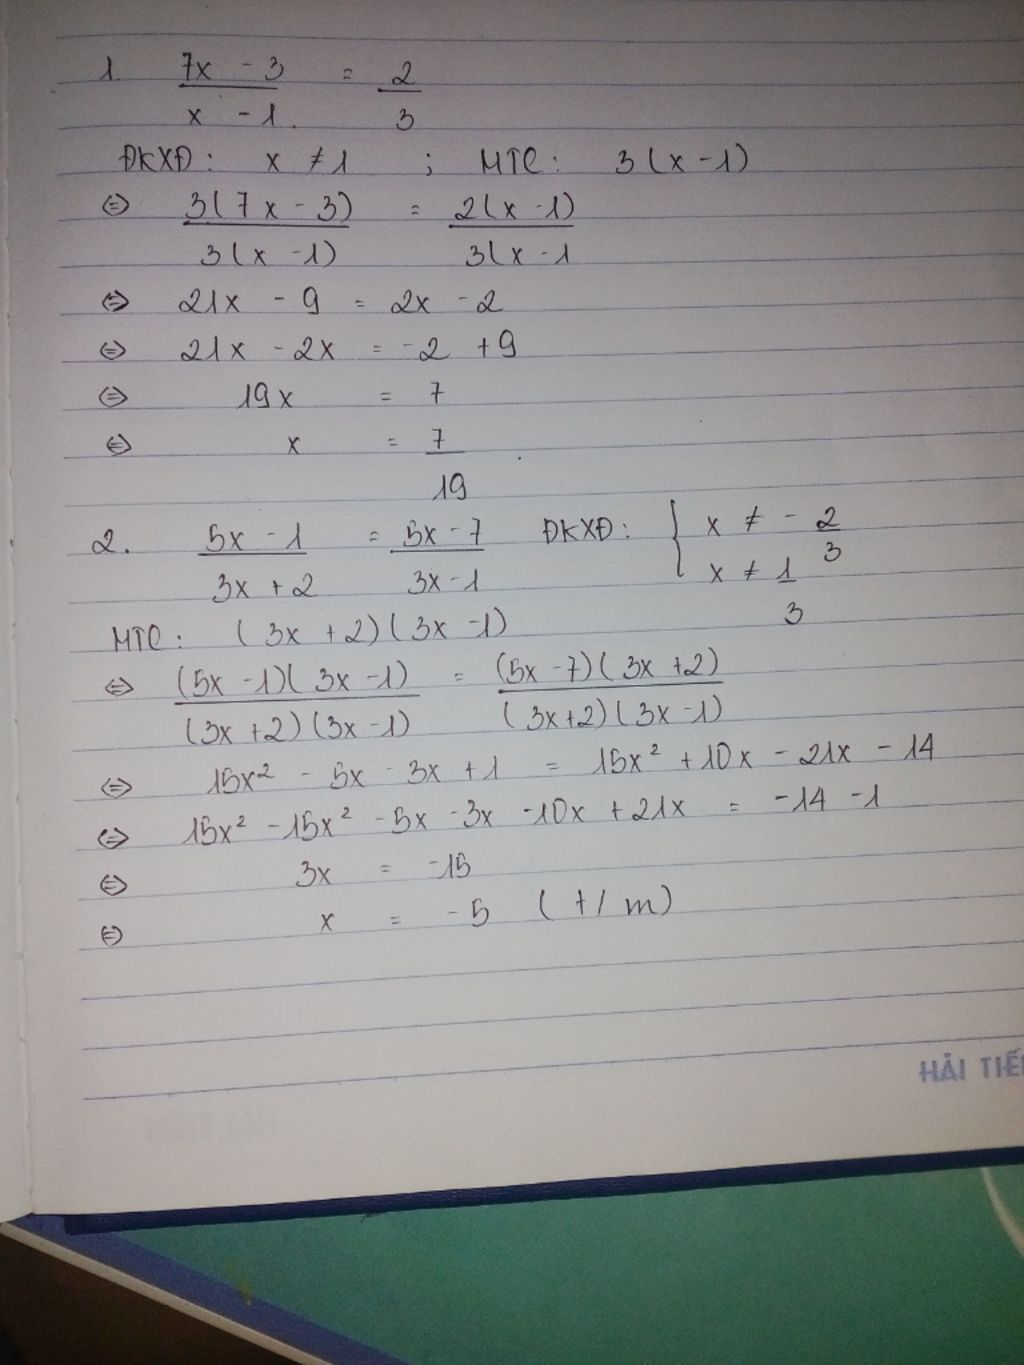 1. 7x - 3 / x - 1. = 2 / 3
ĐKXĐ: x ≠ 1 ; MTC: 3(x - 1)
⇔ 3(7x - 3) / 3(x - 1) = 2(x - 1) / 3(x - 1
⇔ 21x - 9 = 2x - 2
⇔ 21x - 2x = -2 + 9
⇔ 19x = 7
⇔ x = 7 / 19
2. 5x - 1 / 3x + 2 = 5x - 7 / 3x - 1 ĐKXĐ: { x ≠ - 2 / 3
x ≠ 1 / 3
MTC: (3x + 2)(3x - 1)
⇔ (5x - 1)(3x - 1) / (3x + 2)(3x - 1) = (5x - 7)(3x + 2) / (3x + 2)(3x - 1)
⇔ 15x² - 5x - 3x + 1 = 15x² + 10x - 21x - 14
⇔ 15x² - 15x² - 5x - 3x - 10x + 21x = -14 - 1
⇔ 3x = -15
⇔ x = -5 (t/m)
HẢI TIẾ